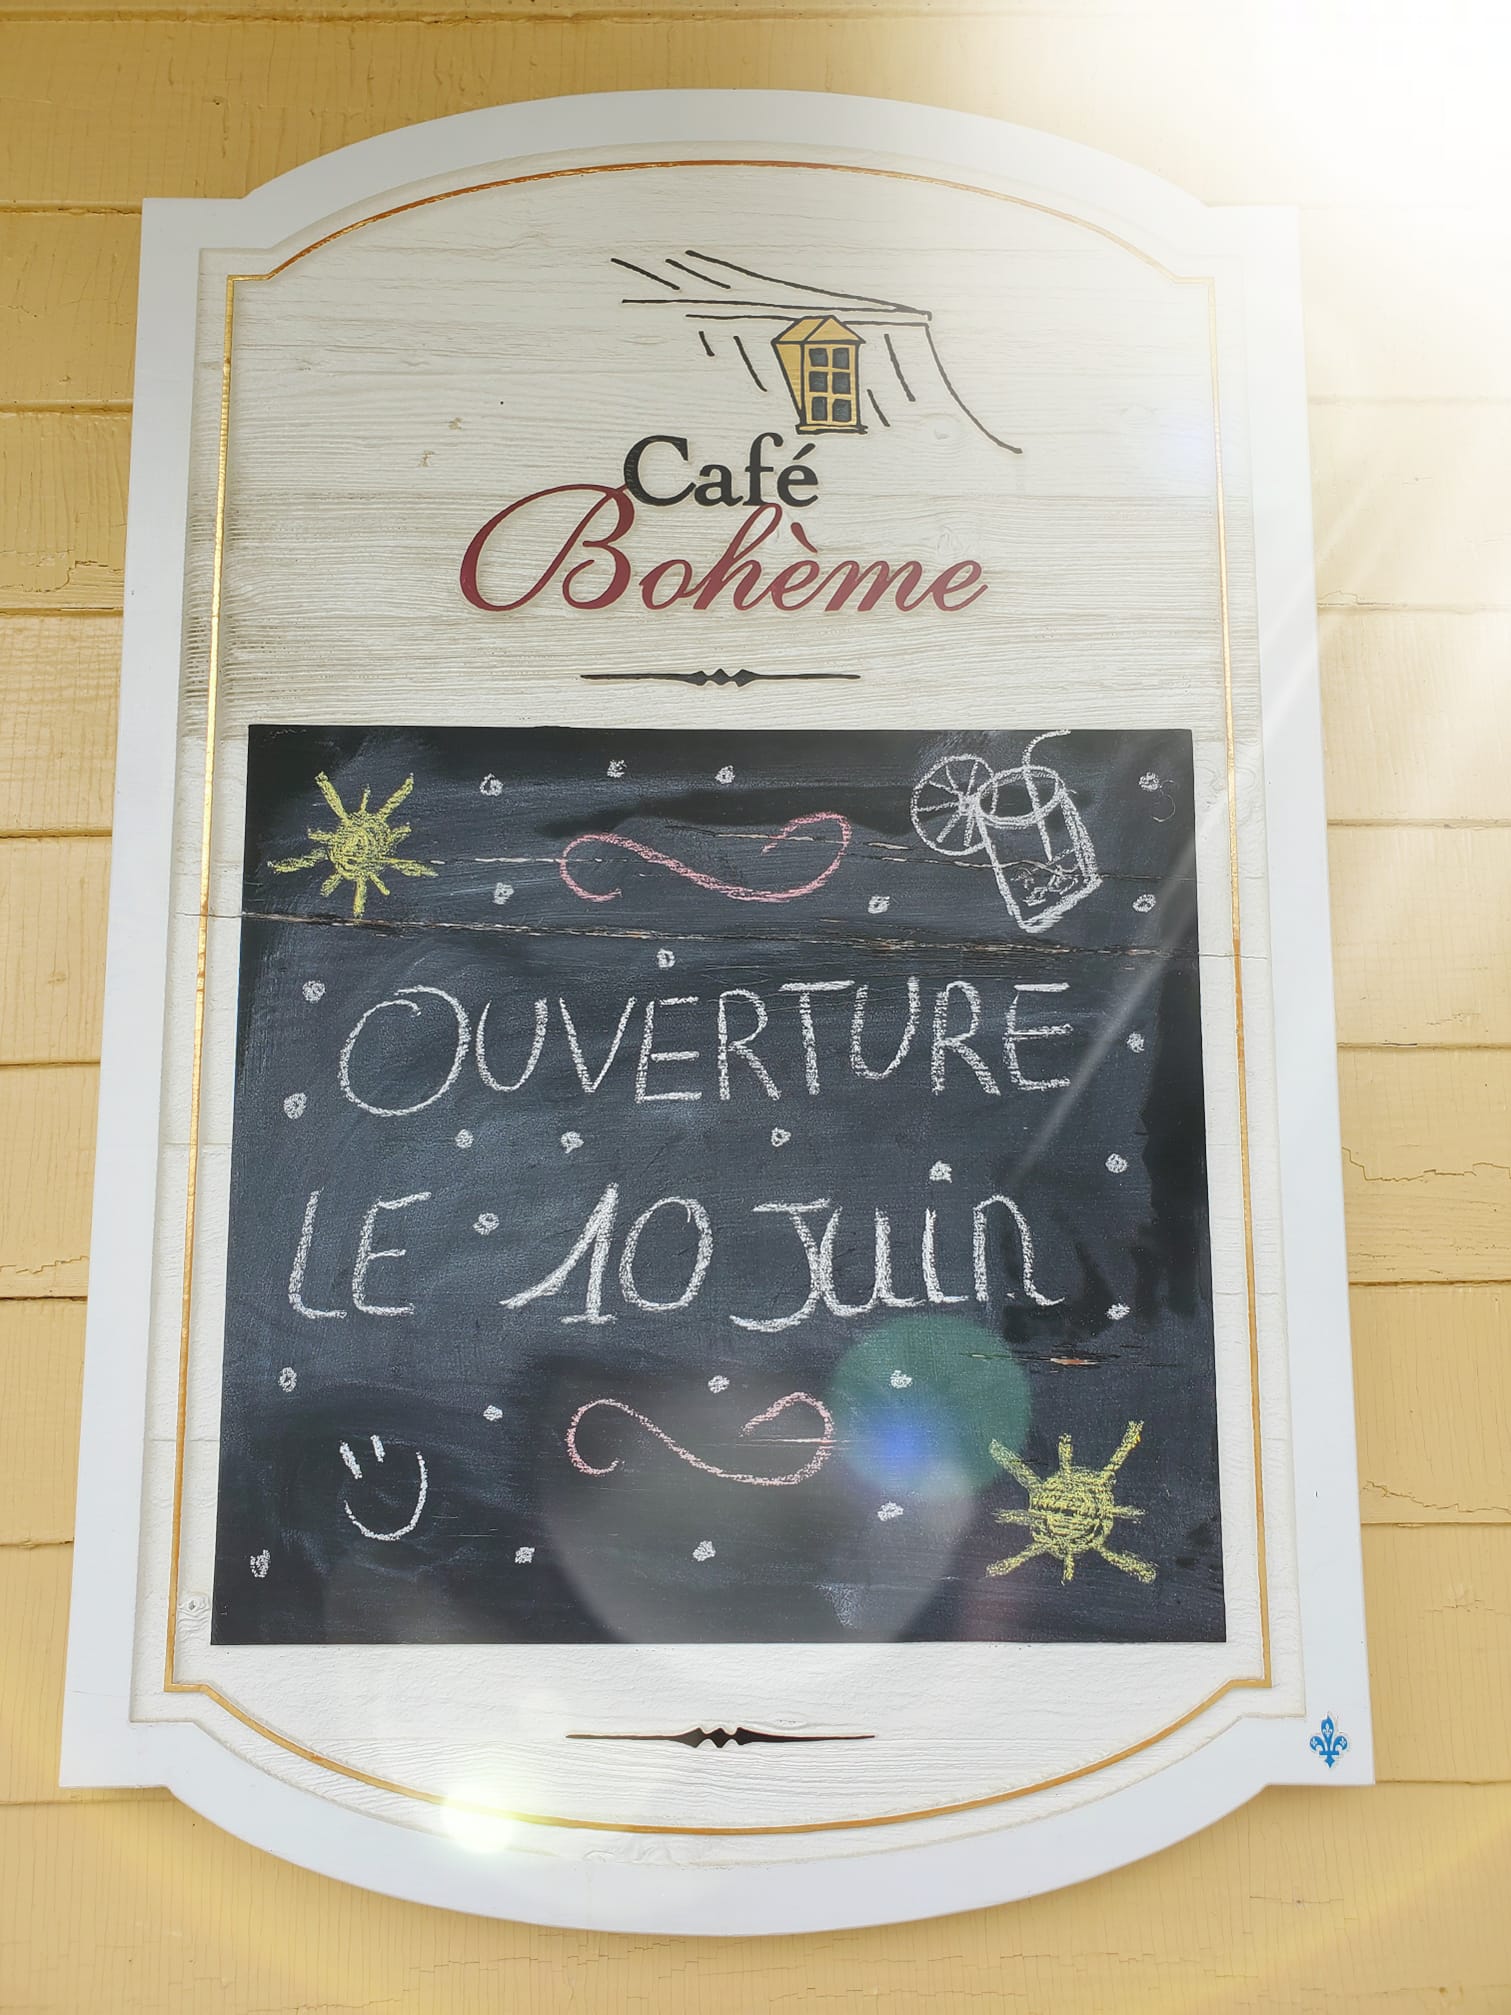 Café
Bohème
OUVERTURE
LE 10 Juin